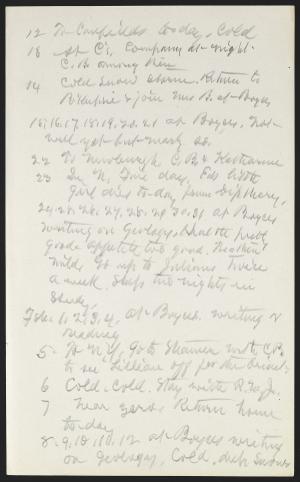 12 To Canfields to-day, Cold
13 At C's, Company at night.
C. B. among them
14 Cold snow storm. Return to
P'keepsie & join Mrs B. at Boyces
15, 16, 17, 18, 19, 20, 21 at Boyces, Not
well yet but nearly so.
22 To Newburgh, C. B. &
23 In N. Fine day,
girl died to-day from dipthery,
24, 25, 26, 27, 28, 29, 30, 31 at Boyces
writing on Geology, Health
good, appetite too good. Weather
mild, Go up to Julians twice
a week. Stays two nights in
Study,
Feb. 1, 2, 3, 4, at Boyces. writing &
reading
5 To N.Y, Go to Steamer with C.B.
to see Lillian off for the Orient.
6 Cold, cold. Stay with R. Jr.
7 Near zero. Return home
to-day
8, 9, 10, 11, 12 at Boyces writing
on geology, Cold, deep snows